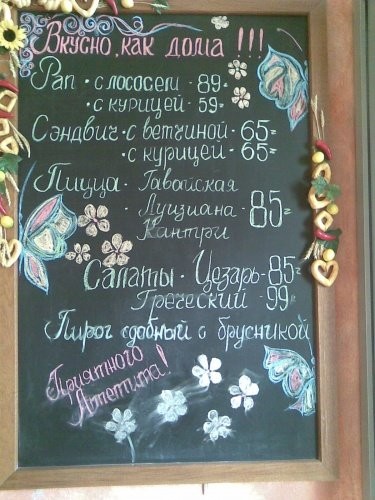 Вкусно, как дома !!!
Рап • с лососем - 89=
• с курицей - 59=
Сэндвич • с ветчиной - 65=
• с курицей - 65=
Пицца • Гавайская
• Луизиана - 85=
Кантри
Салаты • Цезарь - 85=
Греческий - 99=
Пирог сдобный с брусникой
Приятного
Аппетита!